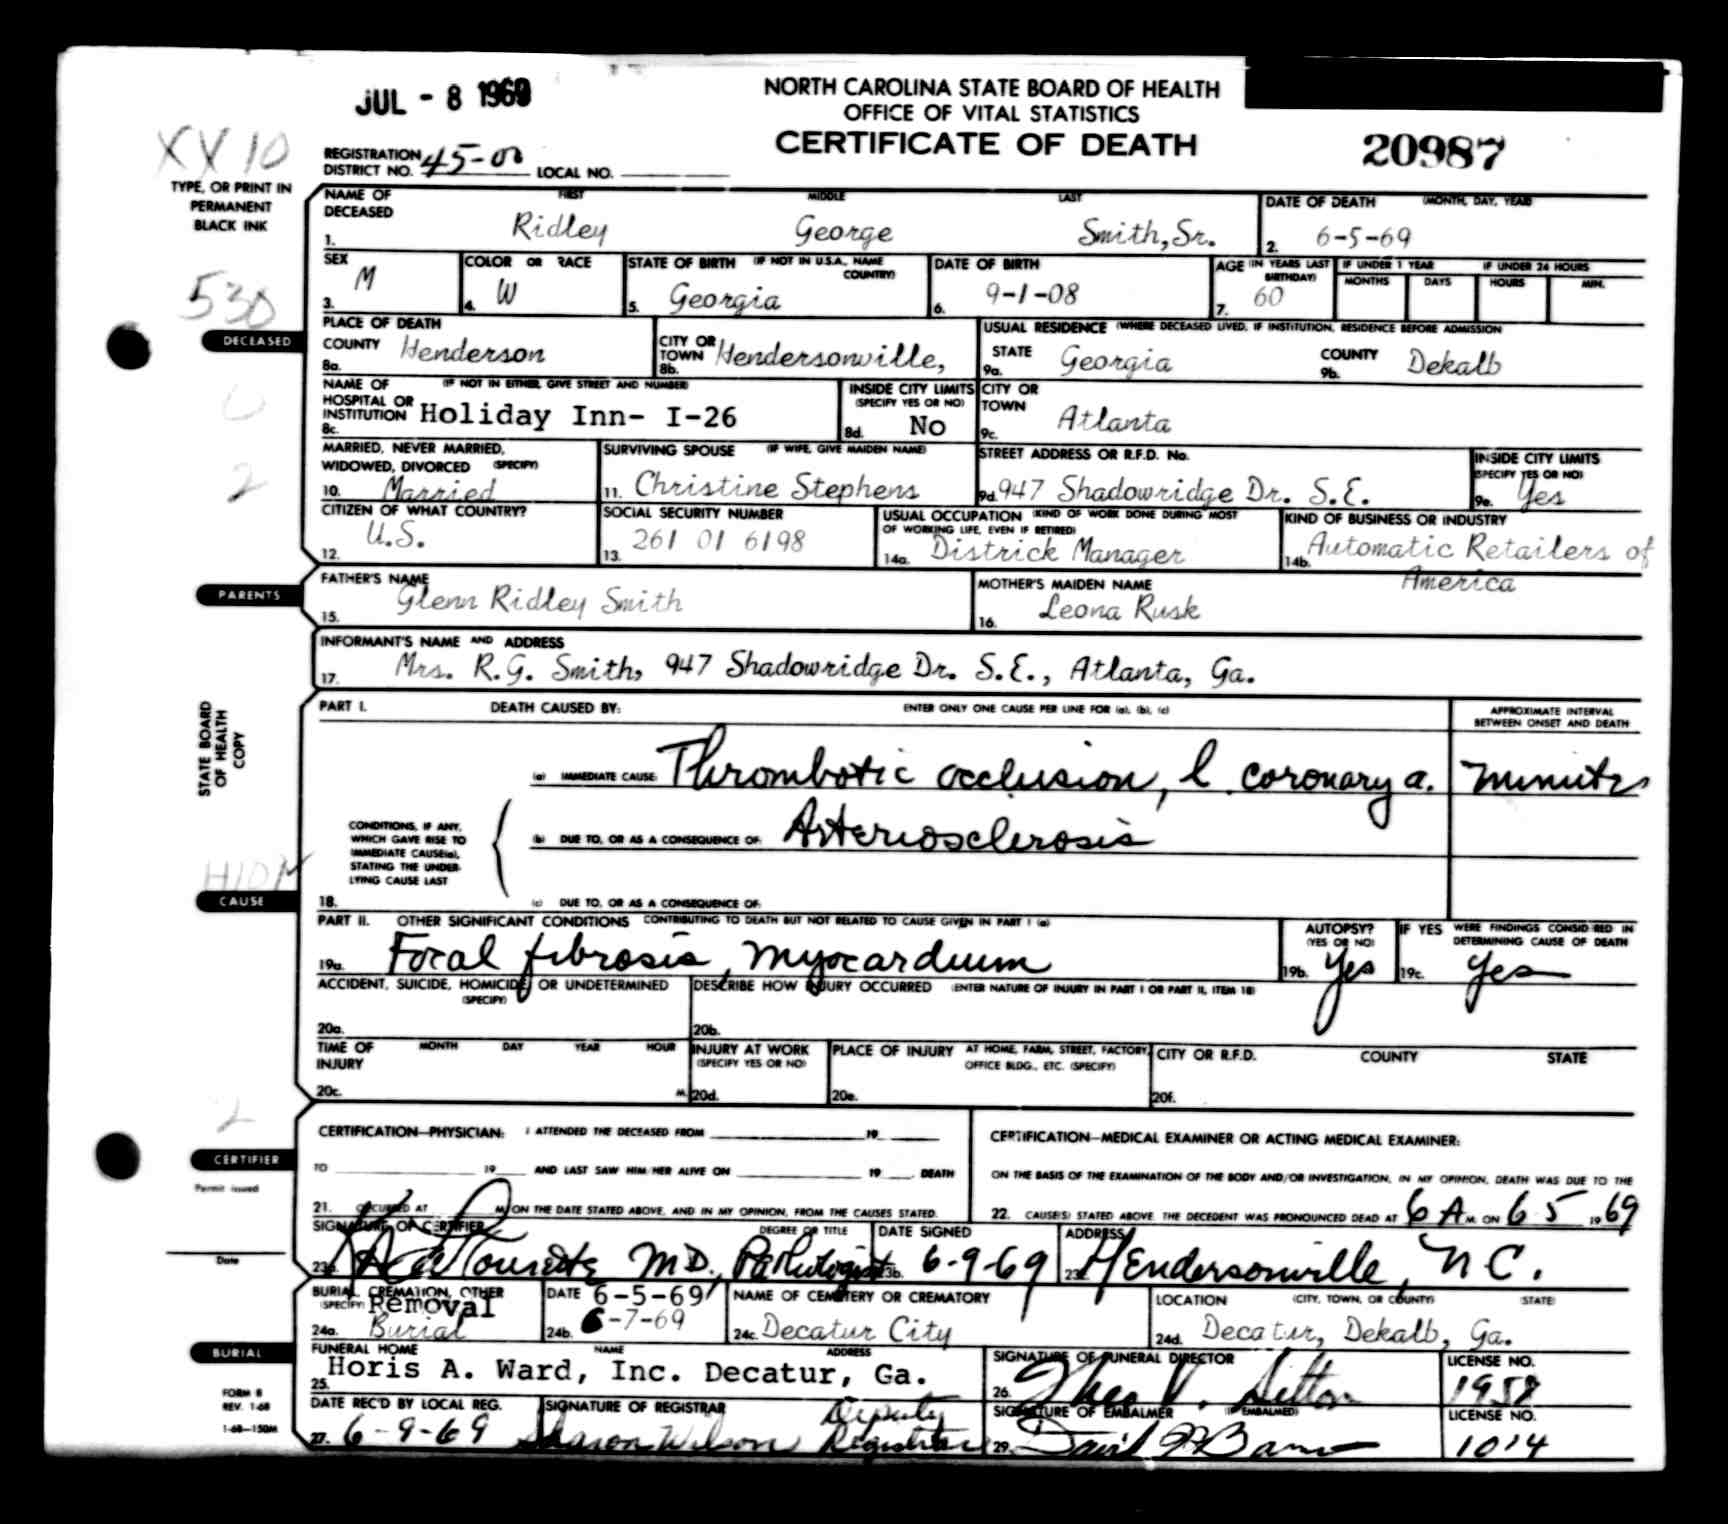 JUL - 8 1969
NORTH CAROLINA STATE BOARD OF HEALTH
OFFICE OF VITAL STATISTICS
CERTIFICATE OF DEATH
20987
XX10
REGISTRATION DISTRICT NO. 45-00 LOCAL NO.
TYPE, OR PRINT IN
PERMANENT
BLACK INK
530
DECEASED
0
2
NAME OF DECEASED FIRST MIDDLE LAST
1. Ridley George Smith, Sr.
DATE OF DEATH (MONTH, DAY, YEAR)
2. 6-5-69
SEX
3. M
COLOR OR RACE
4. W
STATE OF BIRTH (IF NOT IN U.S.A., NAME COUNTRY)
5. Georgia
DATE OF BIRTH
6. 9-1-08
AGE (IN YEARS LAST BIRTHDAY)
7. 60
IF UNDER 1 YEAR
MONTHS DAYS
IF UNDER 24 HOURS
HOURS MIN.
PLACE OF DEATH
COUNTY Henderson
8a.
CITY OR TOWN Hendersonville,
8b.
USUAL RESIDENCE (WHERE DECEASED LIVED, IF INSTITUTION, RESIDENCE BEFORE ADMISSION
STATE Georgia
9a.
COUNTY Dekalb
9b.
NAME OF HOSPITAL OR INSTITUTION (IF NOT IN EITHER, GIVE STREET AND NUMBER)
8c. Holiday Inn- I-26
INSIDE CITY LIMITS (SPECIFY YES OR NO)
8d. No
CITY OR TOWN
9c. Atlanta
MARRIED, NEVER MARRIED, WIDOWED, DIVORCED (SPECIFY)
10. Married
SURVIVING SPOUSE (IF WIFE, GIVE MAIDEN NAME)
11. Christine Stephens
STREET ADDRESS OR R.F.D. No.
9d. 947 Shadowridge Dr. S.E.
INSIDE CITY LIMITS (SPECIFY YES OR NO)
9e. Yes
CITIZEN OF WHAT COUNTRY?
12. U.S.
SOCIAL SECURITY NUMBER
13. 261 01 6198
USUAL OCCUPATION (KIND OF WORK DONE DURING MOST OF WORKING LIFE, EVEN IF RETIRED)
14a. Districk Manager
KIND OF BUSINESS OR INDUSTRY
14b. Automatic Retailers of
America
PARENTS
FATHER'S NAME
15. Glenn Ridley Smith
MOTHER'S MAIDEN NAME
16. Leona Rusk
INFORMANT'S NAME AND ADDRESS
17. Mrs. R.G. Smith, 947 Shadowridge Dr. S.E., Atlanta, Ga.
STATE BOARD
OF HEALTH
COPY
PART I. DEATH CAUSED BY: ENTER ONLY ONE CAUSE PER LINE FOR (a), (b), (c)
APPROXIMATE INTERVAL BETWEEN ONSET AND DEATH
(a) IMMEDIATE CAUSE: Thrombotic occlusion, l coronary a. minutes
CONDITIONS, IF ANY,
WHICH GAVE RISE TO
IMMEDIATE CAUSE(a),
STATING THE UNDER-
LYING CAUSE LAST
(b) DUE TO, OR AS A CONSEQUENCE OF: Arteriosclerosis
18. (c) DUE TO, OR AS A CONSEQUENCE OF:
CAUSE
PART II. OTHER SIGNIFICANT CONDITIONS CONTRIBUTING TO DEATH BUT NOT RELATED TO CAUSE GIVEN IN PART I (a)
19a. Focal fibrosis, myocardium
AUTOPSY? (YES OR NO)
19b. Yes
IF YES WERE FINDINGS CONSIDERED IN DETERMINING CAUSE OF DEATH
19c. yes
ACCIDENT, SUICIDE, HOMICIDE, OR UNDETERMINED (SPECIFY)
20a.
DESCRIBE HOW INJURY OCCURRED (ENTER NATURE OF INJURY IN PART I OR PART II, ITEM 18)
20b.
TIME OF INJURY MONTH DAY YEAR HOUR
20c. M.
INJURY AT WORK (SPECIFY YES OR NO)
20d.
PLACE OF INJURY AT HOME, FARM, STREET, FACTORY, OFFICE BLDG., ETC. (SPECIFY)
20e.
CITY OR R.F.D. COUNTY STATE
20f.
2
CERTIFIER
Permit issued
Date
CERTIFICATION—PHYSICIAN: I ATTENDED THE DECEASED FROM 19
TO 19 AND LAST SAW HIM/HER ALIVE ON 19 DEATH
21. OCCURRED AT M ON THE DATE STATED ABOVE, AND IN MY OPINION, FROM THE CAUSES STATED.
CERTIFICATION—MEDICAL EXAMINER OR ACTING MEDICAL EXAMINER:
ON THE BASIS OF THE EXAMINATION OF THE BODY AND/OR INVESTIGATION, IN MY OPINION, DEATH WAS DUE TO THE
22. CAUSE(S) STATED ABOVE. THE DECEDENT WAS PRONOUNCED DEAD AT 6 A M. ON 6 5 1969
SIGNATURE OF CERTIFIER DEGREE OR TITLE
23a. MD, Pathologist
DATE SIGNED
23b. 6-9-69
ADDRESS
23c. Hendersonville, NC.
BURIAL, CREMATION, OTHER (SPECIFY) Removal
24a. Burial
DATE 6-5-69
24b. 6-7-69
NAME OF CEMETERY OR CREMATORY
24c. Decatur City
LOCATION (CITY, TOWN, OR COUNTY) (STATE)
24d. Decatur, Dekalb, Ga.
BURIAL
FUNERAL HOME NAME ADDRESS
25. Horis A. Ward, Inc. Decatur, Ga.
SIGNATURE OF FUNERAL DIRECTOR
26.
LICENSE NO.
1958
FORM 8
REV. 1-68
1-68—150M
DATE REC'D BY LOCAL REG.
27. 6-9-69
SIGNATURE OF REGISTRAR
Sharon Wilson Deputy Registrar
SIGNATURE OF EMBALMER (IF EMBALMED)
29. David
LICENSE NO.
1014